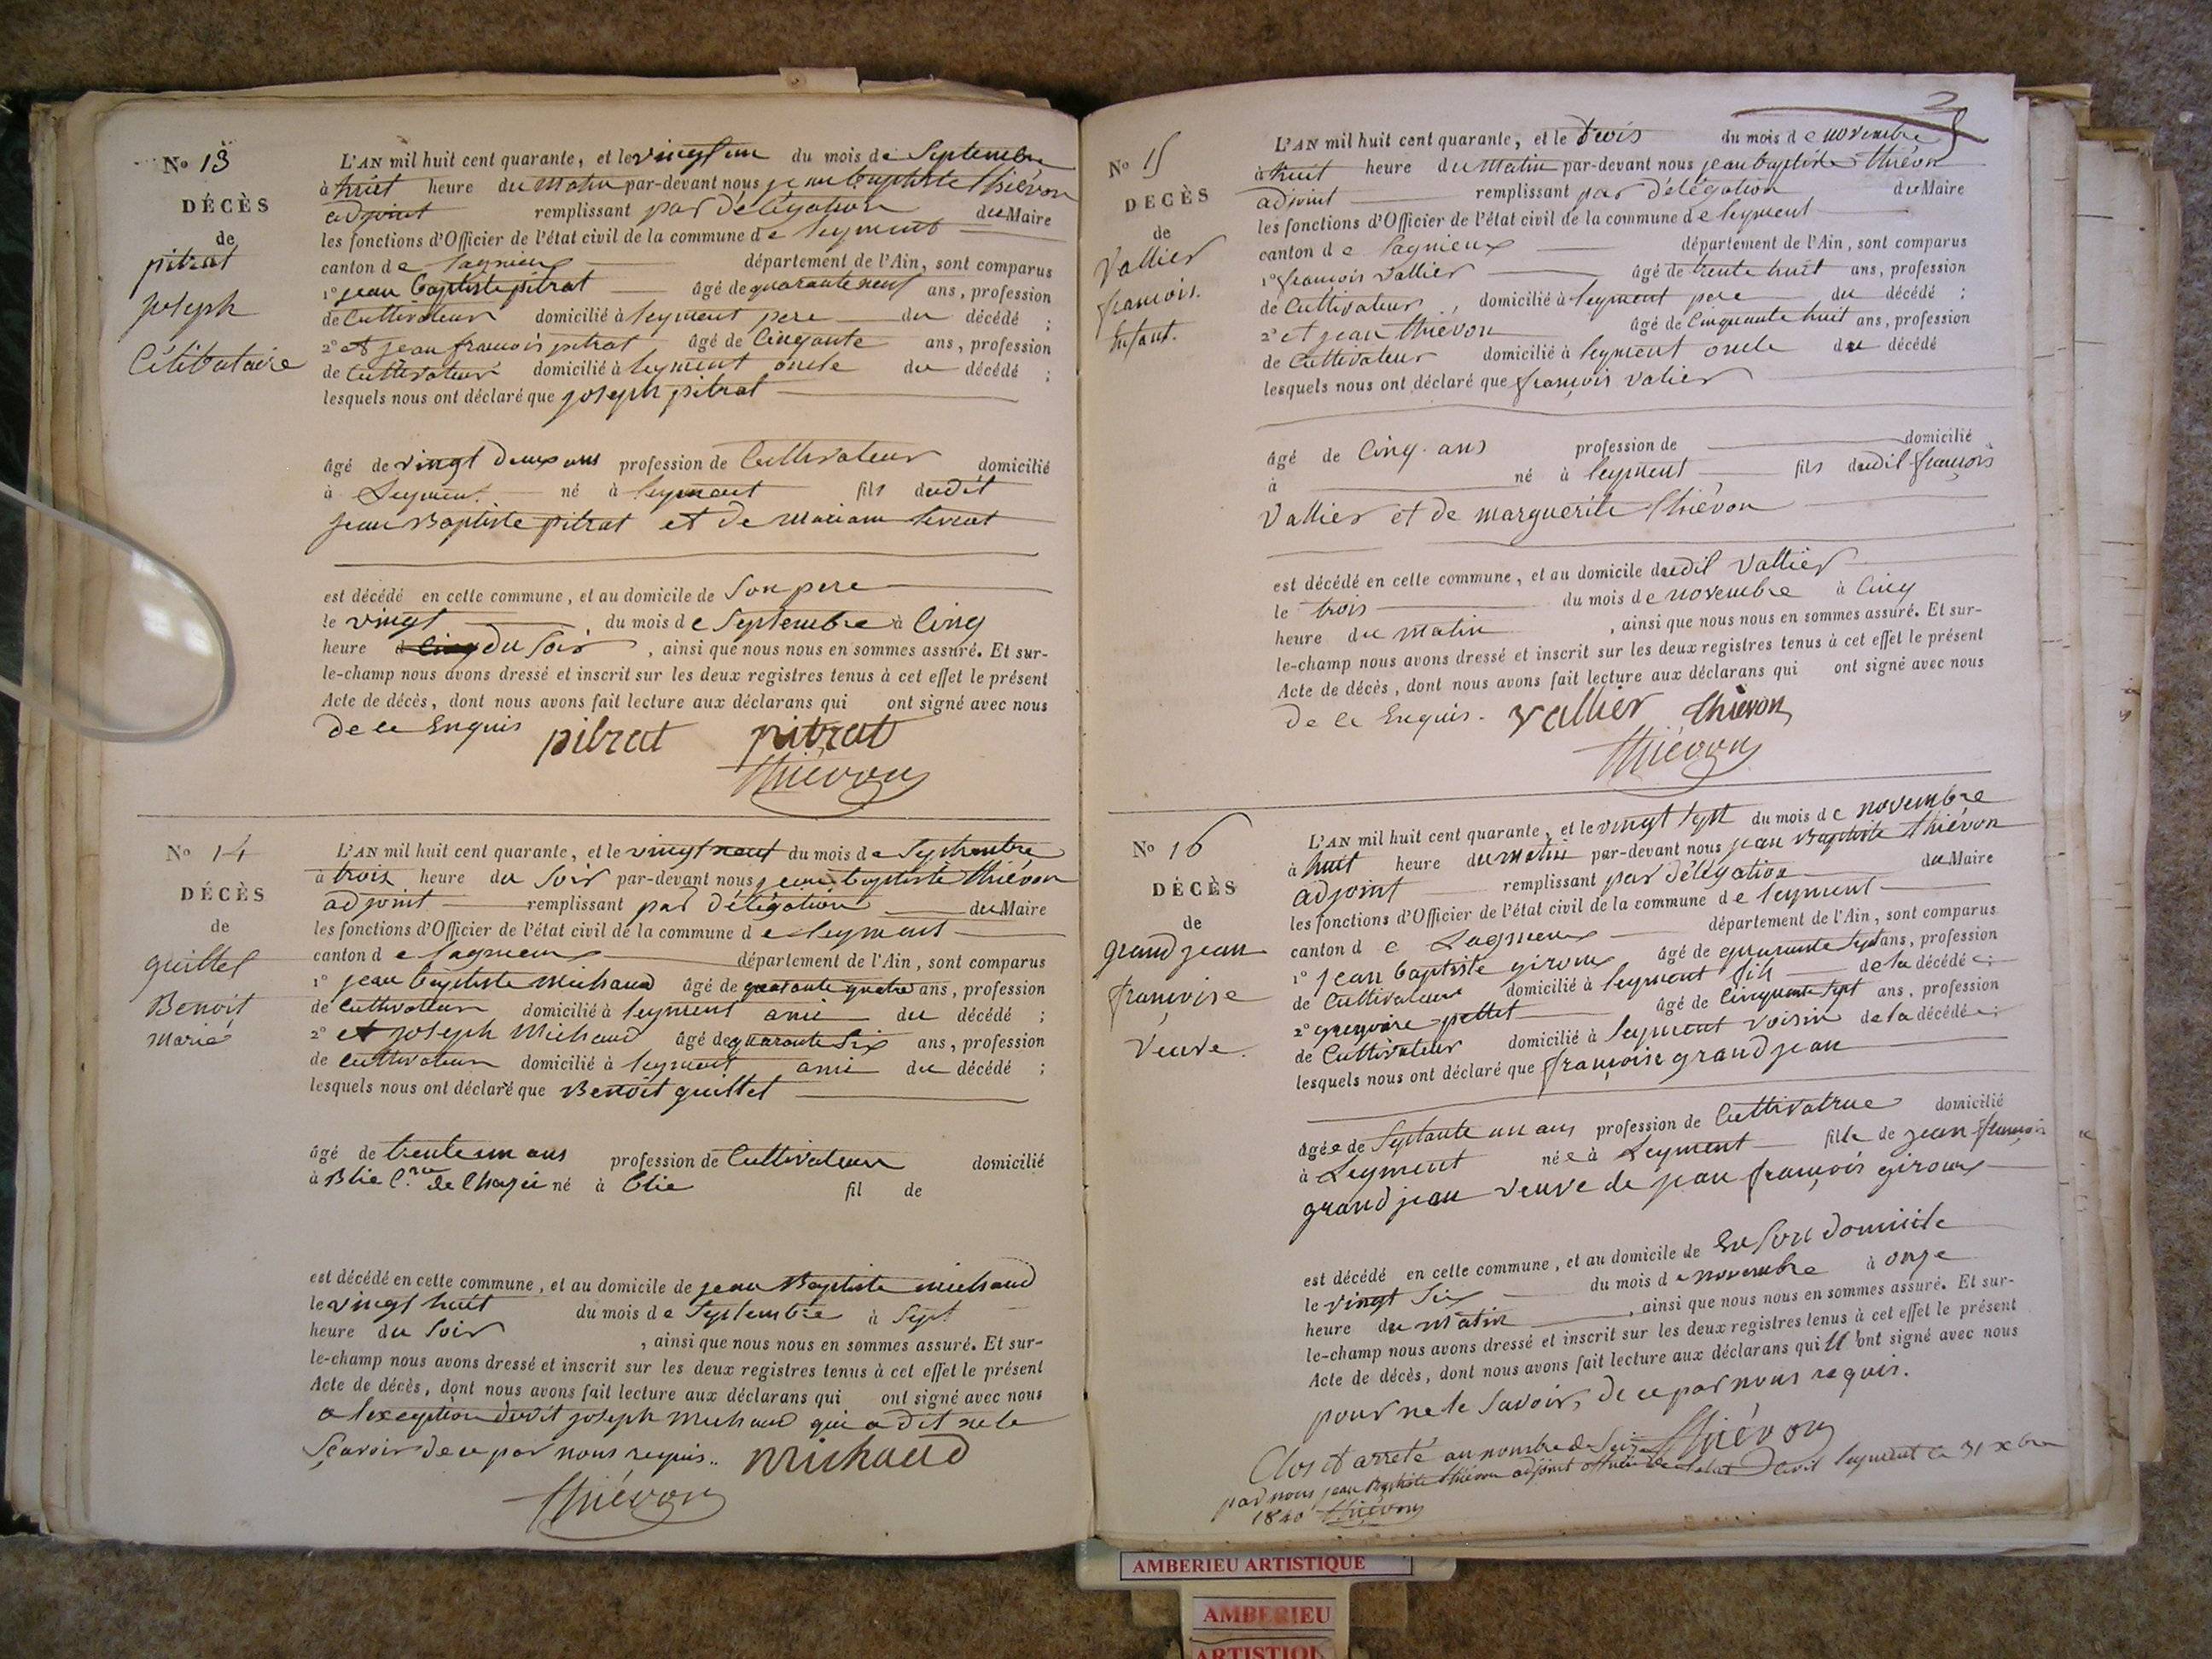 No 13
DÉCÈS
de
pitrat
joseph
Célibataire
L'AN mil huit cent quarante, et le vingt un du mois de Septembre
à huit heure du matin par-devant nous jean baptiste thiévon
adjoint remplissant par délégation du Maire
les fonctions d'Officier de l'état civil de la commune de leyment
canton de lagnieux département de l'Ain, sont comparus
1° jean baptiste pitrat âgé de quarante neuf ans, profession
de Cultivateur domicilié à leyment pere du décédé ;
2° et jean francois pitrat âgé de Cinqante ans, profession
de Cultivateur domicilié à leyment oncle du décédé ;
lesquels nous ont déclaré que joseph pitrat
âgé de vingt deux ans profession de Cultivateur domicilié
à Leyment né à leyment fils dudit
jean Baptiste pitrat et de
est décédé en cette commune, et au domicile de Son pere
le vingt du mois de Septembre à Cinq
heure du Soir, ainsi que nous nous en sommes assuré. Et sur-
le-champ nous avons dressé et inscrit sur les deux registres tenus à cet effet le présent
Acte de décès, dont nous avons fait lecture aux déclarans qui ont signé avec nous
de ce Enquis pitrat pitrat
thiévon
No 14
DÉCÈS
de
guillet
Benoit
marié
L'AN mil huit cent quarante, et le vingt neuf du mois de Septembre
à trois heure du Soir par-devant nous jean baptiste thiévon
adjoint remplissant par délégation du Maire
les fonctions d'Officier de l'état civil de la commune de leyment
canton de lagnieux département de l'Ain, sont comparus
1° jean baptiste michaud âgé de quarante quatre ans, profession
de Cultivateur domicilié à leyment ami du décédé ;
2° et joseph Michaud âgé de quarante Six ans, profession
de Cultivateur domicilié à leyment ami du décédé ;
lesquels nous ont déclaré que Benoit guillet
âgé de trente un ans profession de Cultivateur domicilié
à Blie C.ne de Chazei né à blie fil de
est décédé en cette commune, et au domicile de jean Baptiste michaud
le vingt huit du mois de Septembre à Sept
heure du Soir, ainsi que nous nous en sommes assuré. Et sur-
le-champ nous avons dressé et inscrit sur les deux registres tenus à cet effet le présent
Acte de décès, dont nous avons fait lecture aux déclarans qui ont signé avec nous
a lexception dudit joseph michaud qui a dit ne le
Sçavoir de ce par nous requis.. michaud
thiévon
2
No 15
DÉCÈS
de
Vallier
francois.
Enfant.
L'AN mil huit cent quarante, et le trois du mois de novembre
à huit heure du Matin par-devant nous jean baptiste thiévon
adjoint remplissant par délégation du Maire
les fonctions d'Officier de l'état civil de la commune de leyment
canton de lagnieux département de l'Ain, sont comparus
1° françois Vallier âgé de trente huit ans, profession
de Cultivateur, domicilié à leyment pere du décédé ;
2° et jean thievon âgé de Cinquante huit ans, profession
de Cultivateur domicilié à leyment oncle du décédé
lesquels nous ont déclaré que françois valier
âgé de Cinq ans profession de domicilié
à né à leyment fils dudit françois
Vallier et de marguerite thiévon
est décédé en cette commune, et au domicile dudit Vallier
le trois du mois de novembre à Cinq
heure du matin, ainsi que nous nous en sommes assuré. Et sur-
le-champ nous avons dressé et inscrit sur les deux registres tenus à cet effet le présent
Acte de décès, dont nous avons fait lecture aux déclarans qui ont signé avec nous
de ce Enquis. vallier thievon
thiévon
No 16
DÉCÈS
de
grand jean
françoise
Veuve.
L'AN mil huit cent quarante, et le vingt sept du mois de novembre
à huit heure du matin par-devant nous jean Baptiste thiévon
adjoint remplissant par délégation du Maire
les fonctions d'Officier de l'état civil de la commune de leyment
canton de Lagnieux département de l'Ain, sont comparus
1° jean baptiste giroux âgé de quarante sept ans, profession
de Cultivateur domicilié à leyment fils de la décédée ;
2° gregoire pellet âgé de Cinquante sept ans, profession
de Cultivateur domicilié à leyment voisin de la décédée ;
lesquels nous ont déclaré que françoise grand jean
âgée de Septante un ans profession de Cultivatrice domicilié
à Leyment née à Leyment fille de jean françois
grand jean veuve de jean françois giroux
est décédé en cette commune, et au domicile de En Son domicile
le vingt Six du mois de novembre à onze
heure du matin, ainsi que nous nous en sommes assuré. Et sur-
le-champ nous avons dressé et inscrit sur les deux registres tenus à cet effet le présent
Acte de décès, dont nous avons fait lecture aux déclarans qui n'ont signé avec nous
pour ne le Savoir, de ce par nous requis.
thiévon
Clos et arreté au nombre de Seize
par nous jean Baptiste thiévon adjoint officier de letat Civil leyment le 31 xbre
1840 thiévon
AMBERIEU ARTISTIQUE
AMBERIEU
ARTISTIQU